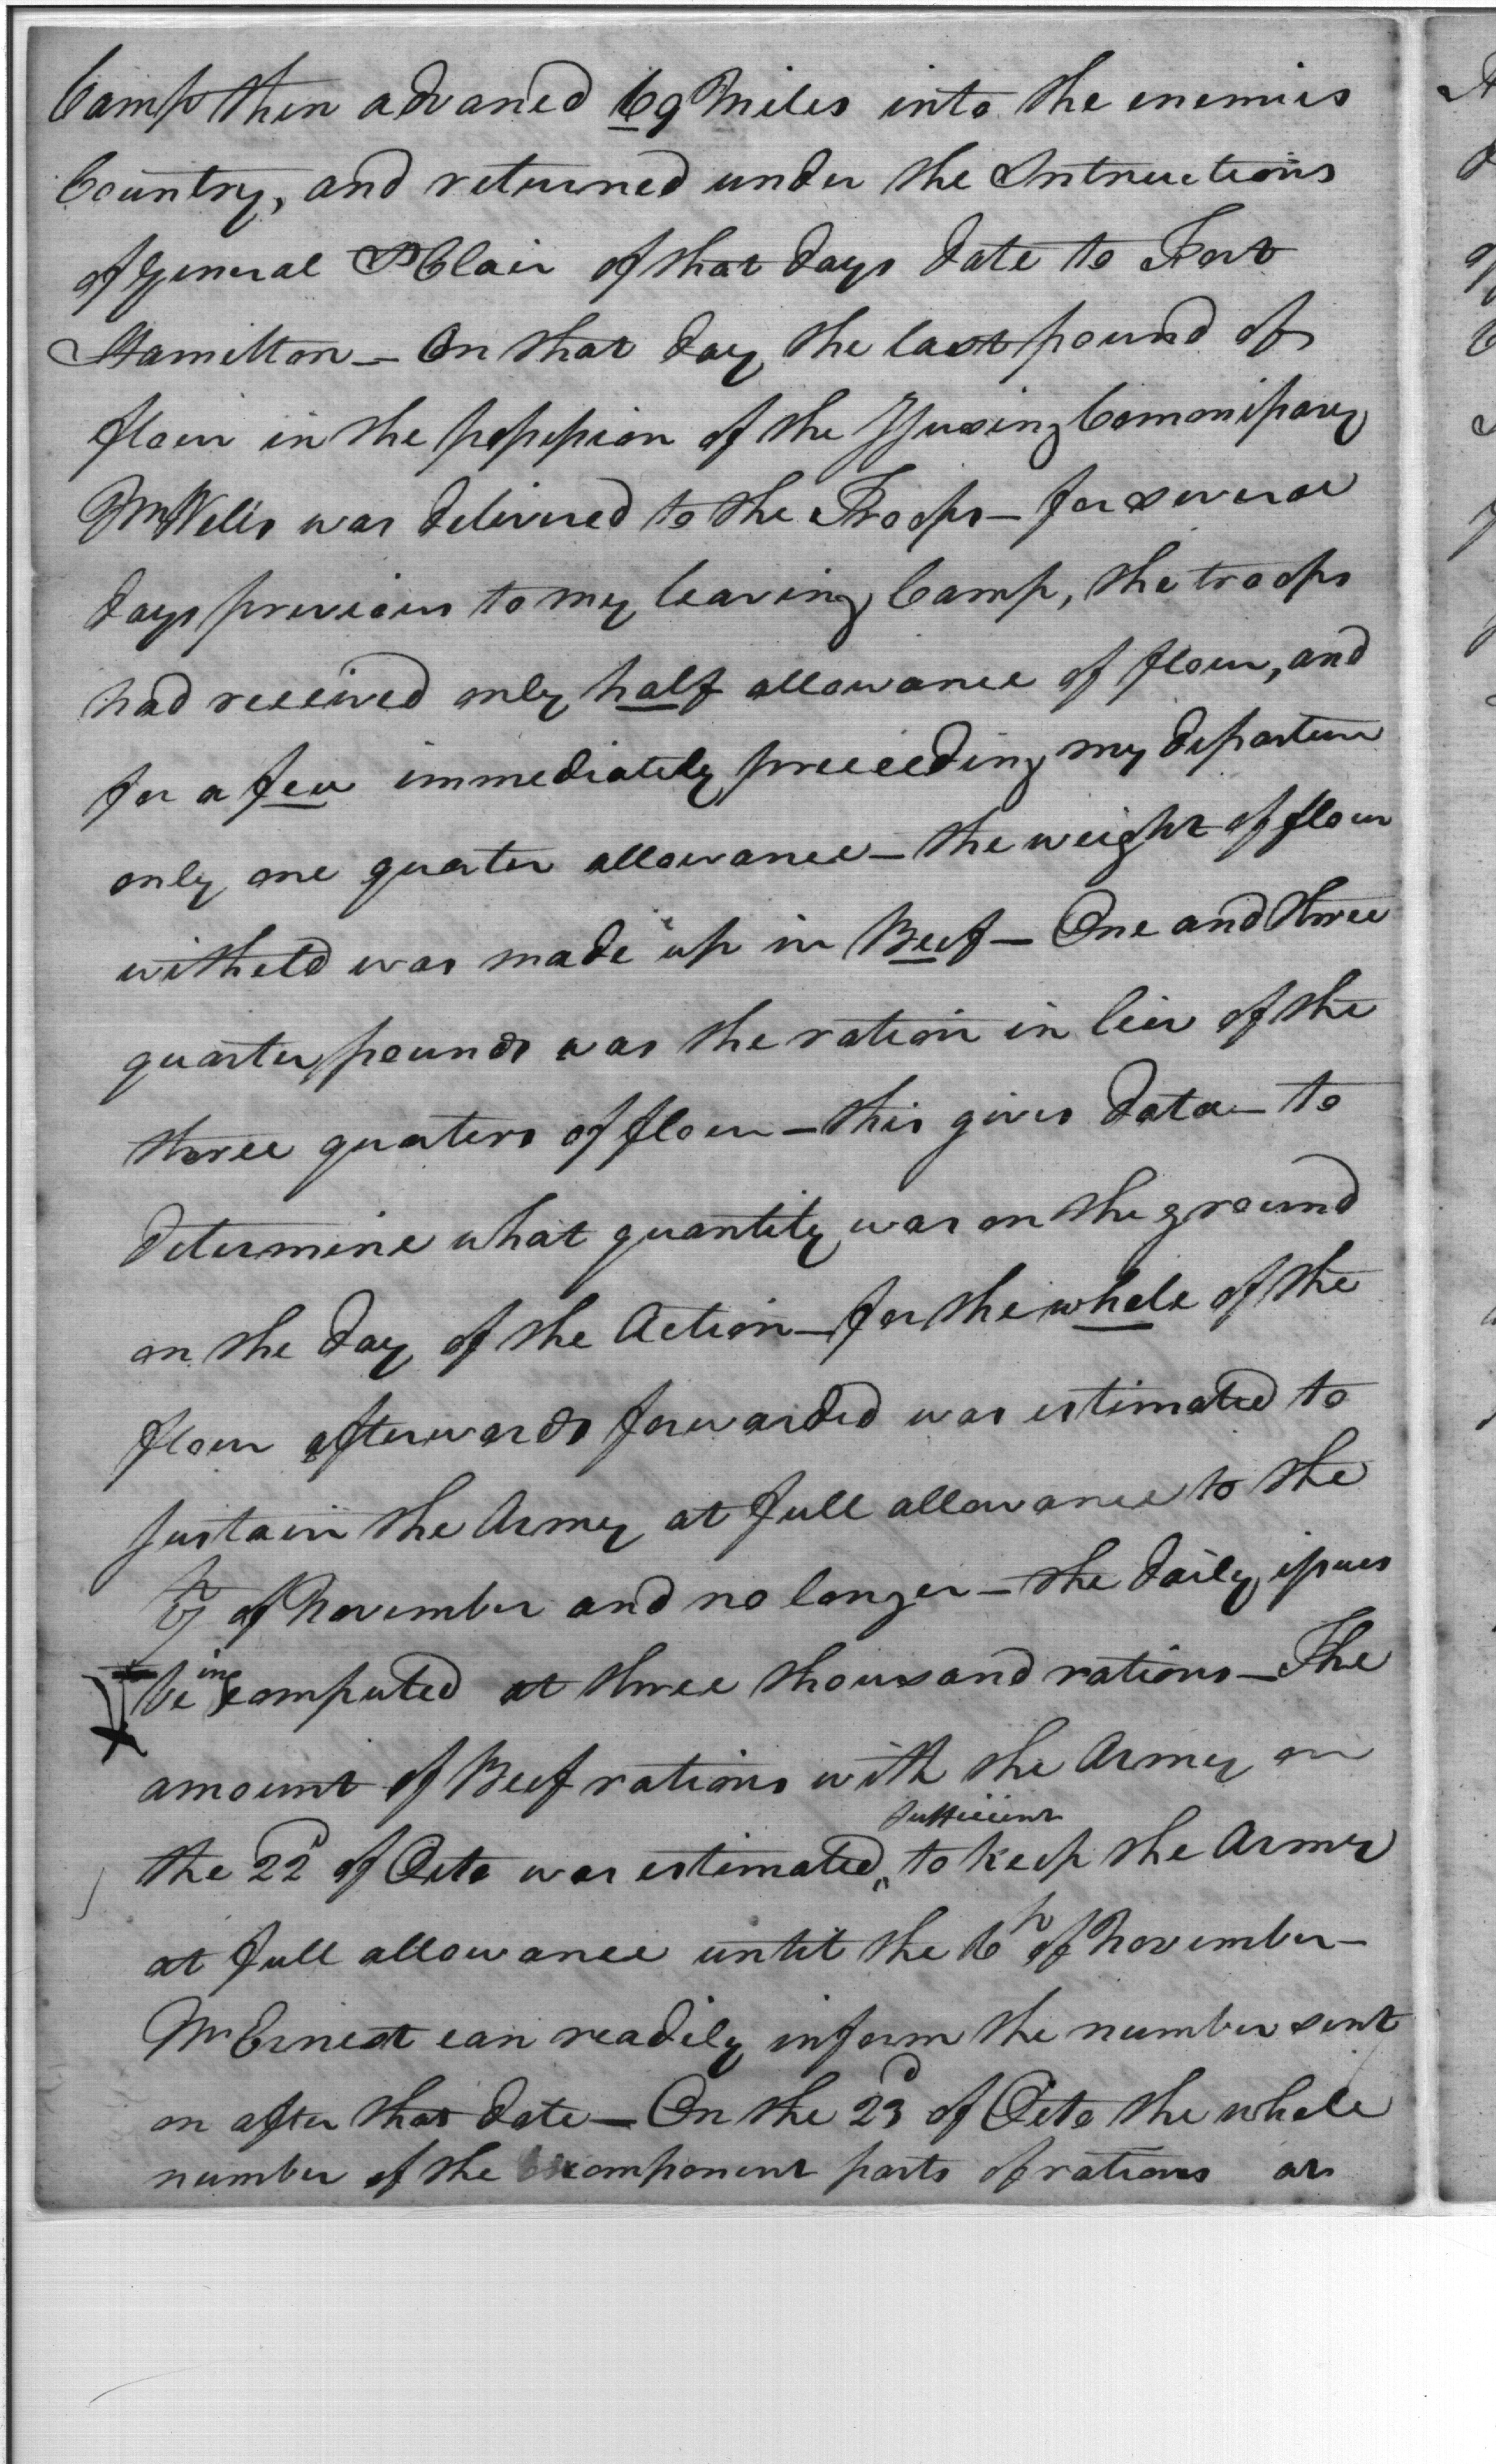 Camp then advaned 69 Miles into the enemies
Country, and returned under the Intructions
of General St Clair of that days date to Fort
Hamilton — On that day the last pound of
flour in the possession of the Issuing Commissary
Mr Wells was delivered to the Troops — for several
days previous to my leaving Camp, the troops
had received only half allowance of flour, and
for a few immediately preceeding my departure
only one quarter allowance — the weight of flour
witheld was made up in Beef — One and three
quarter pounds was the ration in lieu of the
three quarters of flour — this gives data — to
determine what quantity was on the ground
on the day of the Action — for the whole of the
flour afterwards forwarded was estimated to
sustain the Army at full allowance to the
of November and no longer — the daily issues
being computed at three thousand rations — The
amount of Beef rations with the Army on
the 22d of Octo was estimated sufficient to keep the Army
at full allowance until the 6h of November —
Mr Ernest can readily inform the number sent
on after that date — On the 23d of Octo the whole
number of the component parts of rations as